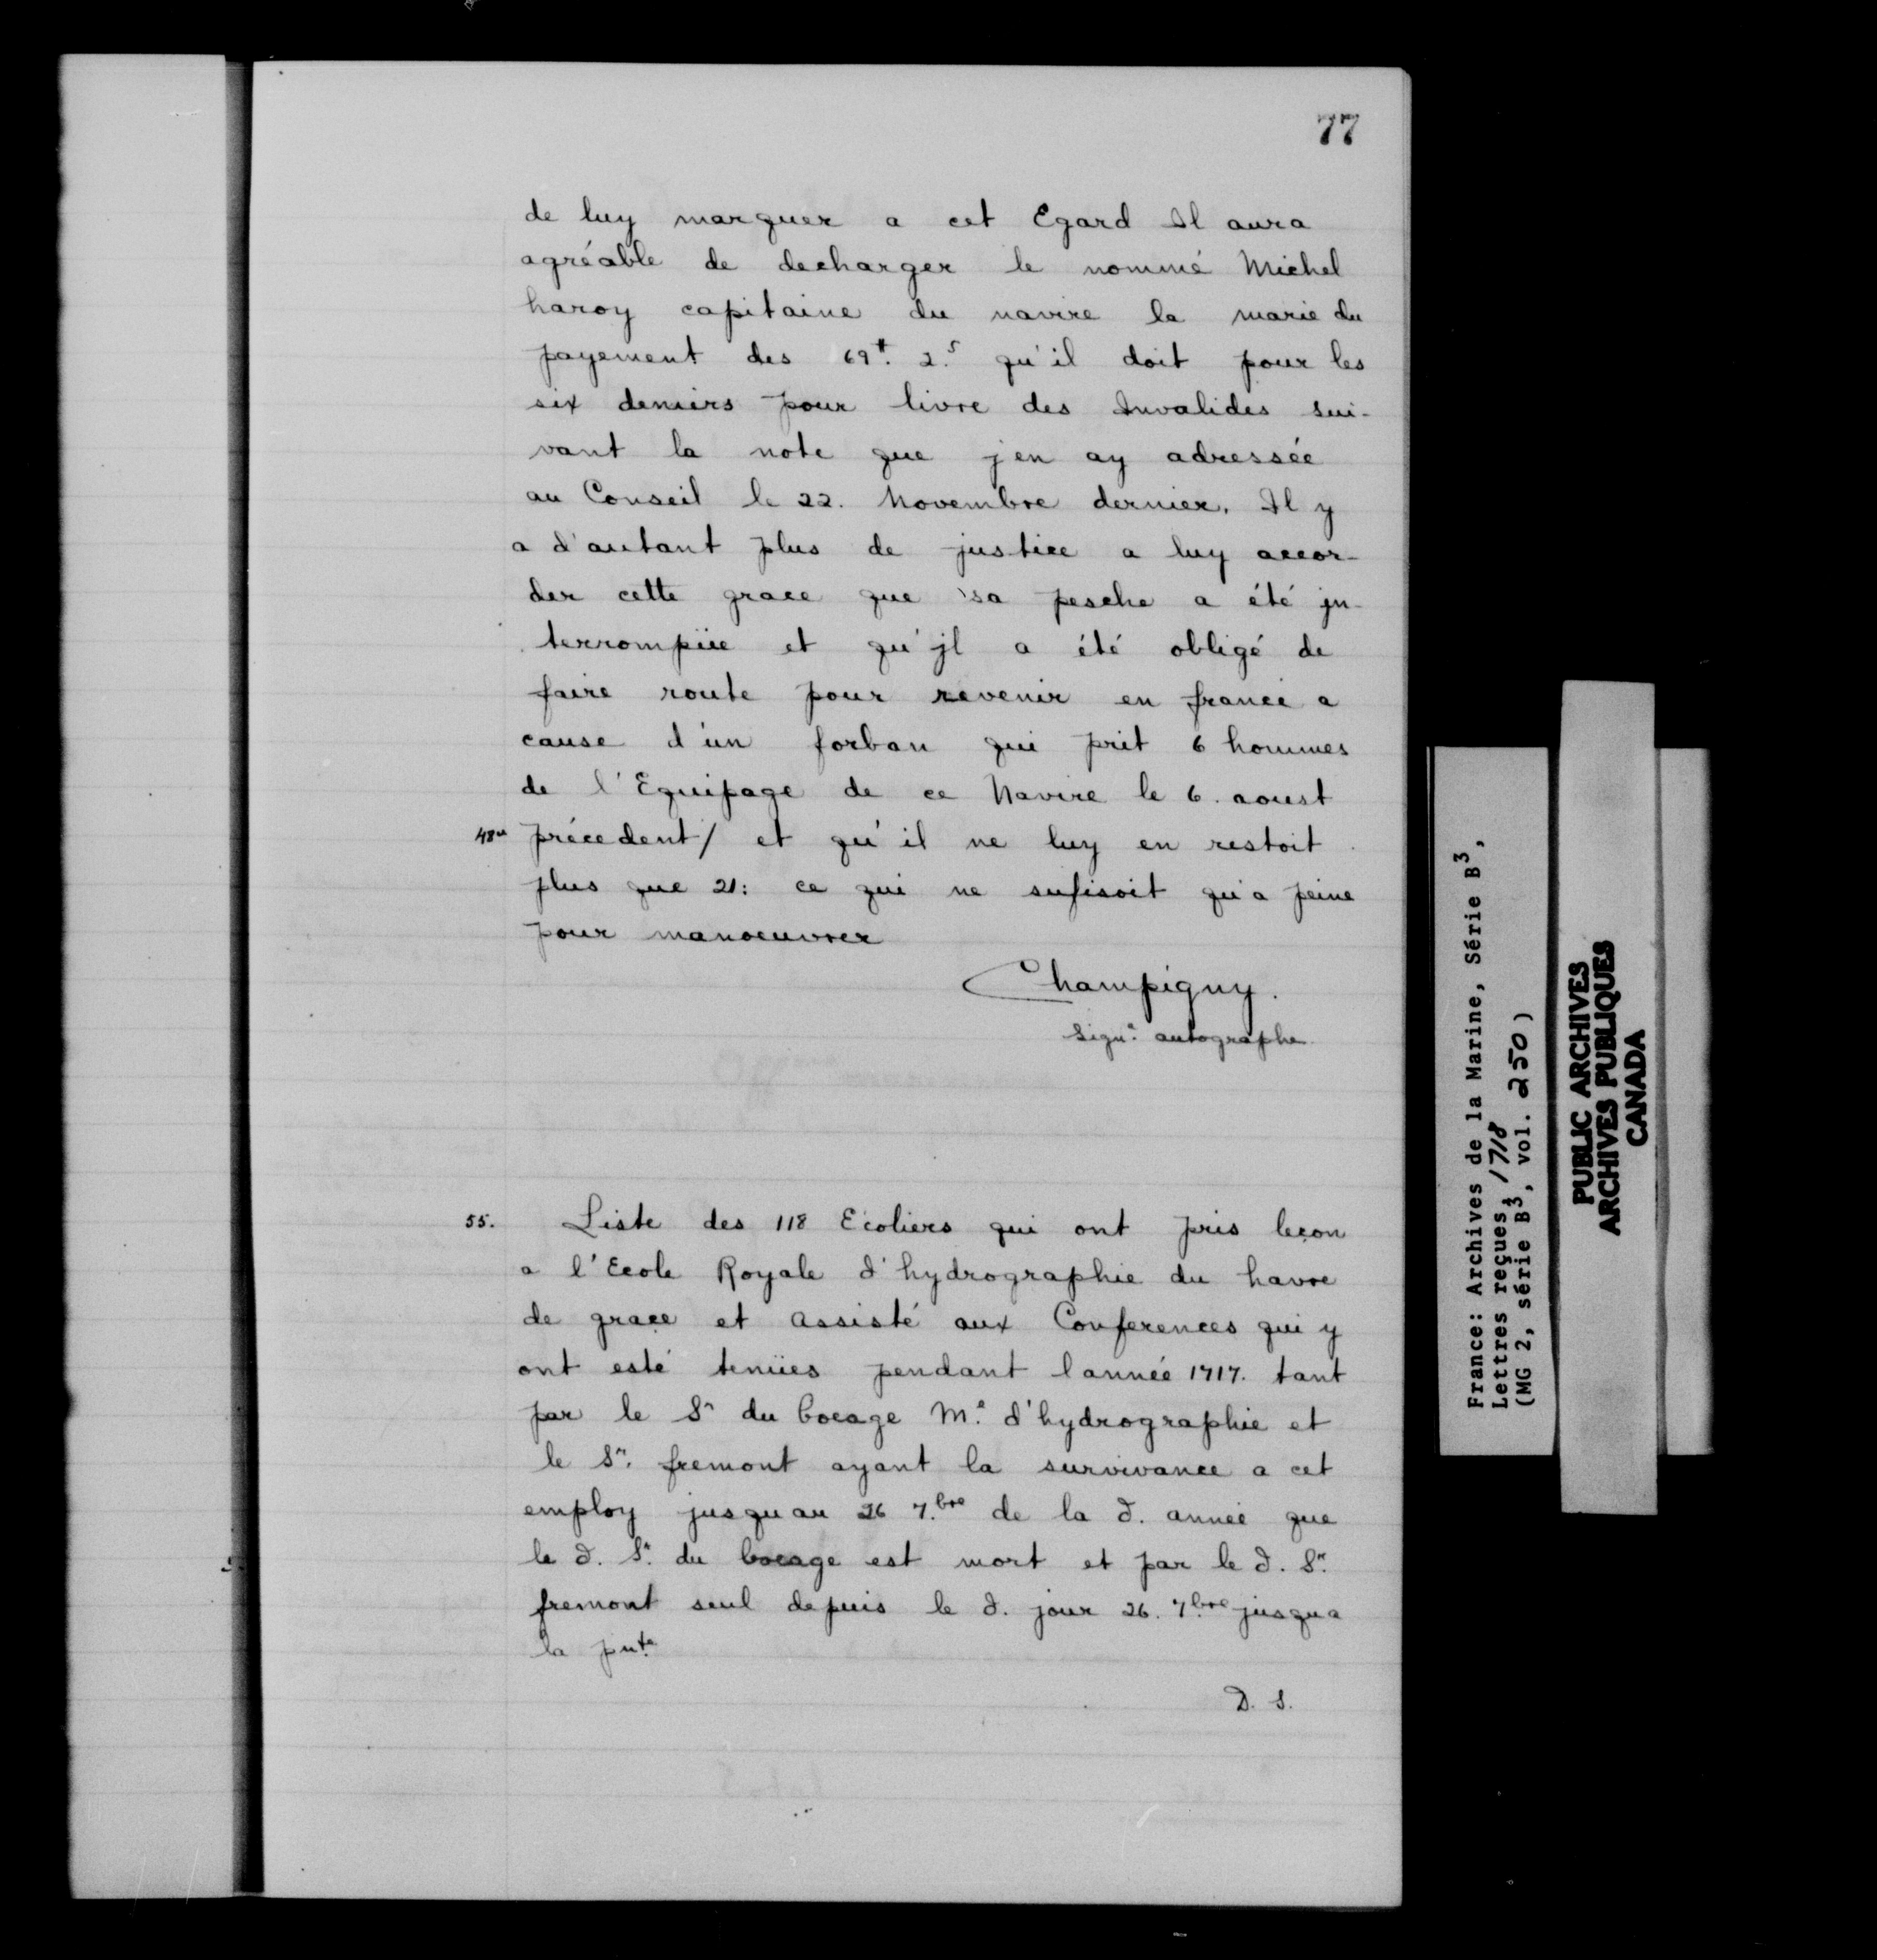 77
de luy marquer a cet Egard Il aura
agréable de decharger le nommé Michel
haroy capitaine du navire la marie du
payement des 69ᵗ. 2.ˢ qu'il doit pour les
six deniers pour livre des Invalides sui-
vant la note que j'en ay adressée
au Conseil le 22. Novembre dernier. Il y
a d'autant plus de justice a luy accor-
der cette grace que sa pesche a été jn-
terrompüe et qu'jl a été obligé de
faire route pour revenir en france a
cause d'un forban qui prit 6 hommes
de l'Equipage de ce Navire le 6. aoust
48ᵛ précedent/ et qu'il ne luy en restoit
plus que 21: ce qui ne sufisoit qu'a peine
pour manoeuvrer
Champigny.
Signᵉ. autographe
55. Liste des 118 Ecoliers qui ont pris leçon
a l'Ecole Royale d'hydrographie du havre
de grace et assisté aux Conferences qui y
ont esté tenües pendant l'année 1717. tant
par le Sʳ du bocage M.ᵉ d'hydrographie et
le Sʳ. fremont ayant la survivance a cet
employ jusqu'au 26 7.ᵇʳᵉ de la d. année que
le d. Sʳ. du bocage est mort et par le d. Sʳ.
fremont seul depuis le d. jour 26. 7.ᵇʳᵉ jusqu'a
la pn.ᵗᵉ
D. S.
France: Archives de la Marine, Série B³,
Lettres reçues, 1718
(MG 2, série B³, vol. 250)
PUBLIC ARCHIVES
ARCHIVES PUBLIQUES
CANADA